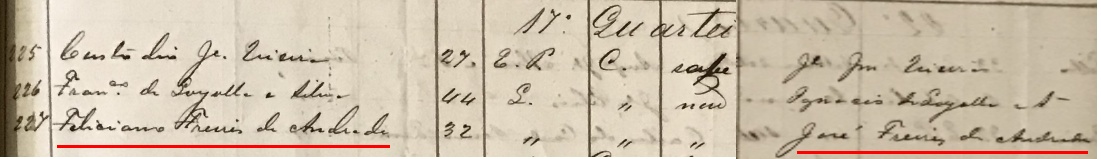 17º Quartei
225 Custodio Je. Vieira 27. E. P. C. sabe Je. Jm. Vieira
226 Franco. de Loyolla e Silva 44 L. " não Ignacio de Loyolla e Sa
227 Feliciano Freires de Andrade 32 " " " José Freires de Andrade